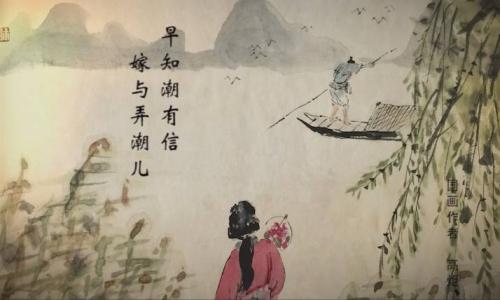 早知潮有信
嫁与弄潮儿
国画作者